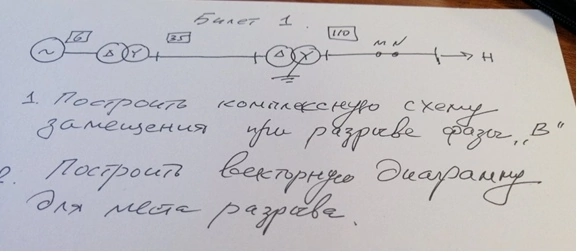 Билет 1.
6 35 110
~ Δ Y Δ Y M N Н
1. Построить комплексную схему
замещения при разрыве фазы „В"
2. Построить векторную диаграмму
для места разрыва.